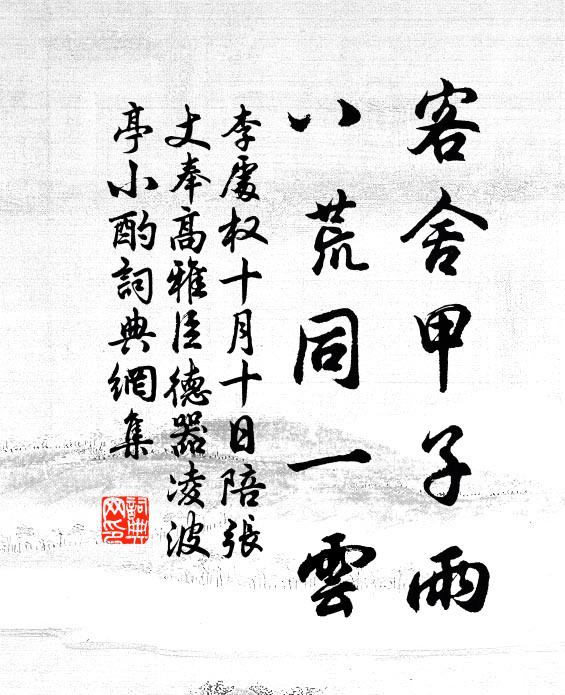 客舍甲子雨
八荒同一雲
李處权十月十日陪張
丈奉高雅臣德器凌波
亭小酌詞典網集
詞典
网印